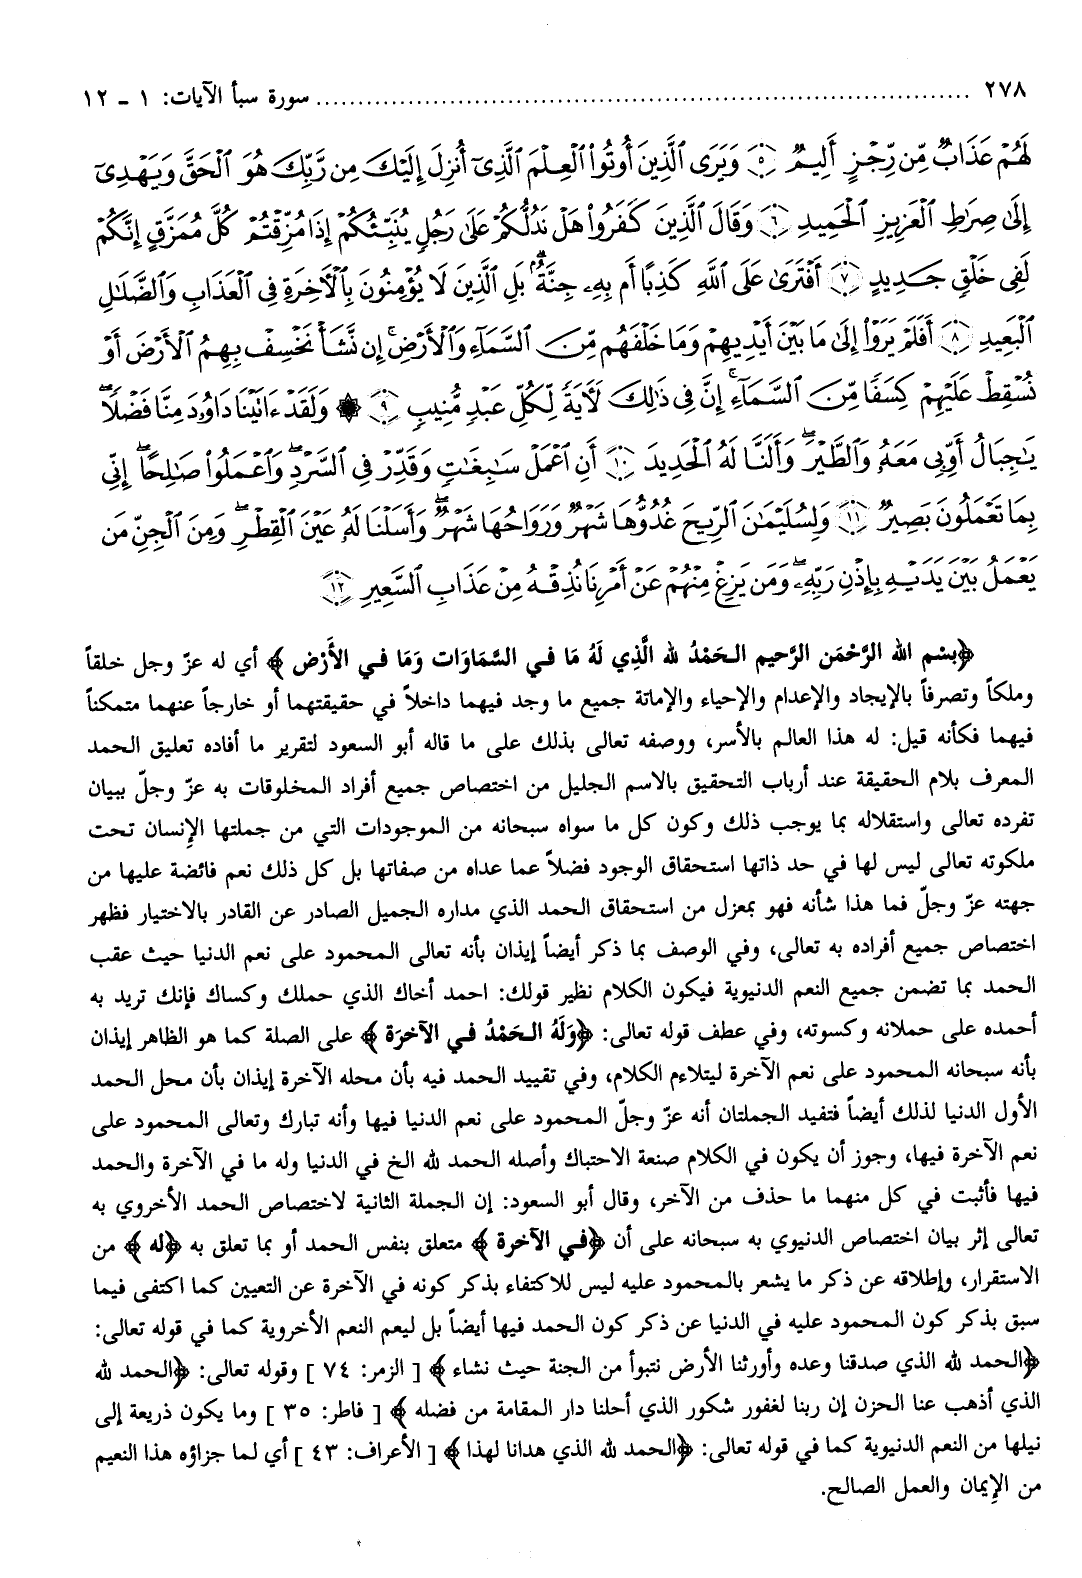 ٢٧٨ ........ سورة سبأ الآيات: ١ - ١٢
لَهُمْ عَذَابٌ مِّن رِّجْزٍ أَلِيمٌ ۝٥ وَيَرَى الَّذِينَ أُوتُوا الْعِلْمَ الَّذِي أُنزِلَ إِلَيْكَ مِن رَّبِّكَ هُوَ الْحَقَّ وَيَهْدِي
إِلَىٰ صِرَاطِ الْعَزِيزِ الْحَمِيدِ ۝٦ وَقَالَ الَّذِينَ كَفَرُوا هَلْ نَدُلُّكُمْ عَلَىٰ رَجُلٍ يُنَبِّئُكُمْ إِذَا مُزِّقْتُمْ كُلَّ مُمَزَّقٍ إِنَّكُمْ
لَفِي خَلْقٍ جَدِيدٍ ۝٧ أَفْتَرَىٰ عَلَى اللَّهِ كَذِبًا أَم بِهِ جِنَّةٌ ۗ بَلِ الَّذِينَ لَا يُؤْمِنُونَ بِالْآخِرَةِ فِي الْعَذَابِ وَالضَّلَالِ
الْبَعِيدِ ۝٨ أَفَلَمْ يَرَوْا إِلَىٰ مَا بَيْنَ أَيْدِيهِمْ وَمَا خَلْفَهُم مِّنَ السَّمَاءِ وَالْأَرْضِ ۚ إِن نَّشَأْ نَخْسِفْ بِهِمُ الْأَرْضَ أَوْ
نُسْقِطْ عَلَيْهِمْ كِسَفًا مِّنَ السَّمَاءِ ۚ إِنَّ فِي ذَٰلِكَ لَآيَةً لِّكُلِّ عَبْدٍ مُّنِيبٍ ۝٩ ۞ وَلَقَدْ ءَاتَيْنَا دَاوُودَ مِنَّا فَضْلًا ۖ
يَا جِبَالُ أَوِّبِي مَعَهُ وَالطَّيْرَ ۖ وَأَلَنَّا لَهُ الْحَدِيدَ ۝١٠ أَنِ اعْمَلْ سَابِغَاتٍ وَقَدِّرْ فِي السَّرْدِ ۖ وَاعْمَلُوا صَالِحًا ۖ إِنِّي
بِمَا تَعْمَلُونَ بَصِيرٌ ۝١١ وَلِسُلَيْمَانَ الرِّيحَ غُدُوُّهَا شَهْرٌ وَرَوَاحُهَا شَهْرٌ ۖ وَأَسَلْنَا لَهُ عَيْنَ الْقِطْرِ ۖ وَمِنَ الْجِنِّ مَن
يَعْمَلُ بَيْنَ يَدَيْهِ بِإِذْنِ رَبِّهِ ۖ وَمَن يَزِغْ مِنْهُمْ عَنْ أَمْرِنَا نُذِقْهُ مِنْ عَذَابِ السَّعِيرِ ۝١٢
﴿بسْم الله الرَّحْمَن الرَّحيم الـحَمْدُ لله الَّذي لَهُ مَا في السَّمَاوَات وَمَا في الأَرْض﴾ أي له عزّ وجل خلقاً
وملكاً وتصرفاً بالإيجاد والإعدام والإحياء والإماتة جميع ما وجد فيهما داخلاً في حقيقتهما أو خارجاً عنهما متمكناً
فيهما فكأنه قيل: له هذا العالم بالأسر، ووصفه تعالى بذلك على ما قاله أبو السعود لتقرير ما أفاده تعليق الحمد
المعرف بلام الحقيقة عند أرباب التحقيق بالاسم الجليل من اختصاص جميع أفراد المخلوقات به عزّ وجلّ ببيان
تفرده تعالى واستقلاله بما يوجب ذلك وكون كل ما سواه سبحانه من الموجودات التي من جملتها الإنسان تحت
ملكوته تعالى ليس لها في حد ذاتها استحقاق الوجود فضلاً عما عداه من صفاتها بل كل ذلك نعم فائضة عليها من
جهته عزّ وجلّ فما هذا شأنه فهو بمعزل من استحقاق الحمد الذي مداره الجميل الصادر عن القادر بالاختيار فظهر
اختصاص جميع أفراده به تعالى، وفي الوصف بما ذكر أيضاً إيذان بأنه تعالى المحمود على نعم الدنيا حيث عقب
الحمد بما تضمن جميع النعم الدنيوية فيكون الكلام نظير قولك: احمد أخاك الذي حملك وكساك فإنك تريد به
أحمده على حملانه وكسوته، وفي عطف قوله تعالى: ﴿وَلَهُ الـحَمْدُ في الآخرَة﴾ على الصلة كما هو الظاهر إيذان
بأنه سبحانه المحمود على نعم الآخرة ليتلاءم الكلام، وفي تقييد الحمد فيه بأن محله الآخرة إيذان بأن محل الحمد
الأول الدنيا لذلك أيضاً فتفيد الجملتان أنه عزّ وجلّ المحمود على نعم الدنيا فيها وأنه تبارك وتعالى المحمود على
نعم الآخرة فيها، وجوز أن يكون في الكلام صنعة الاحتباك وأصله الحمد لله الخ في الدنيا وله ما في الآخرة والحمد
فيها فأثبت في كل منهما ما حذف من الآخر، وقال أبو السعود: إن الجملة الثانية لاختصاص الحمد الأخروي به
تعالى إثر بيان اختصاص الدنيوي به سبحانه على أن ﴿في الآخرة﴾ متعلق بنفس الحمد أو بما تعلق به ﴿له﴾ من
الاستقرار، وإطلاقه عن ذكر ما يشعر بالمحمود عليه ليس للاكتفاء بذكر كونه في الآخرة عن التعيين كما اكتفى فيما
سبق بذكر كون المحمود عليه في الدنيا عن ذكر كون الحمد فيها أيضاً بل ليعم النعم الأخروية كما في قوله تعالى:
﴿الحمد لله الذي صدقنا وعده وأورثنا الأرض نتبوأ من الجنة حيث نشاء﴾ [ الزمر: ٧٤ ] وقوله تعالى: ﴿الحمد لله
الذي أذهب عنا الحزن إن ربنا لغفور شكور الذي أحلنا دار المقامة من فضله﴾ [ فاطر: ٣٥ ] وما يكون ذريعة إلى
نيلها من النعم الدنيوية كما في قوله تعالى: ﴿الحمد لله الذي هدانا لهذا﴾ [ الأعراف: ٤٣ ] أي لما جزاؤه هذا النعيم
من الإيمان والعمل الصالح.